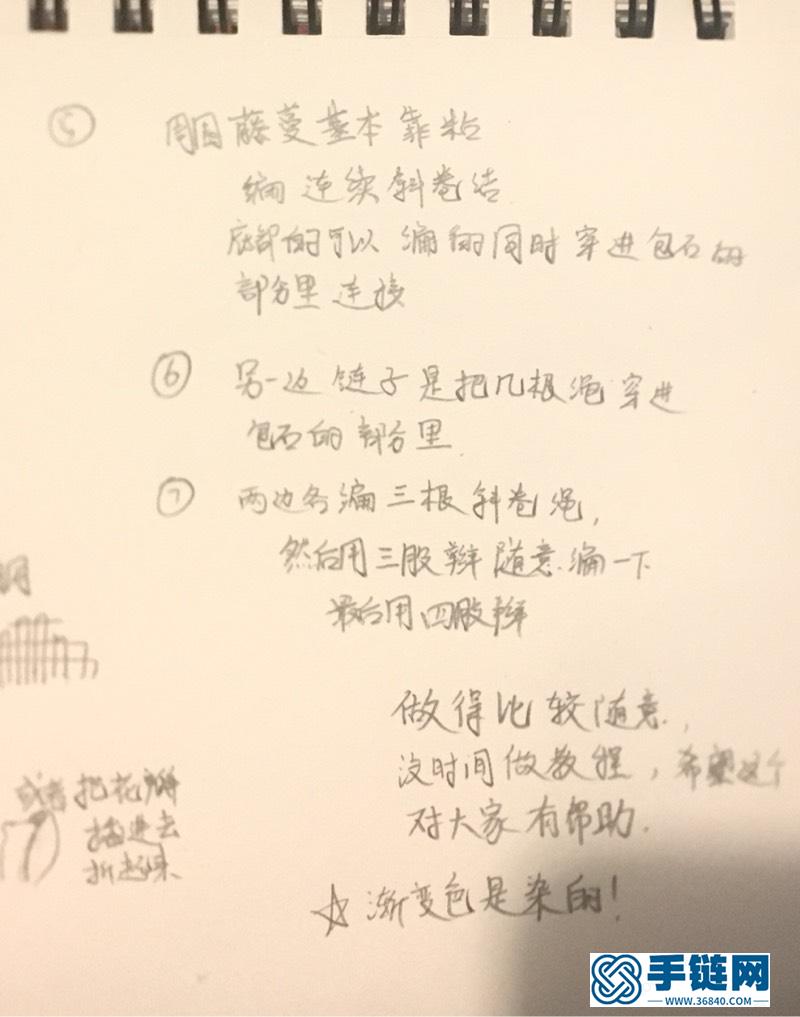 ⑤ 周围藤蔓基本靠粘
编连续斜卷结
底部的可以编的同时穿进包石的
部分里连接
⑥ 另一边链子是把几根绳穿进
包石的部分里.
⑦ 两边各编三根斜卷绳,
然后用三股辫随意编一下
最后用四股辫
做得比较随意,
没时间做教程,希望这个
对大家有帮助.
☆渐变色是染的!
或者把花瓣
插进去
折起来
手链网
WWW.36840.COM